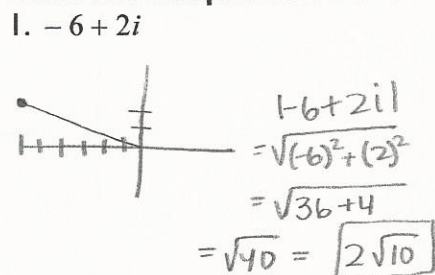 1. −6 + 2i
|-6+2i|
=√(-6)²+(2)²
=√36+4
=√40 = 2√10